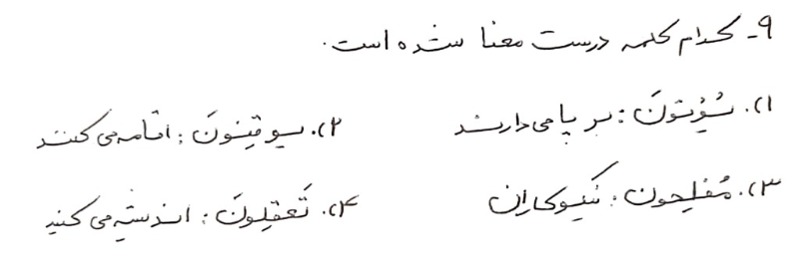 ۹- کدام کلمه درست معنا شده است.
۱). یُؤتونَ : بر پا می دارند ۲). یوقِنونَ : اقامه می کنند
۳). مُفلِحون : نیکوکاران ۴). تَعقِلونَ : اندیشه می کنید